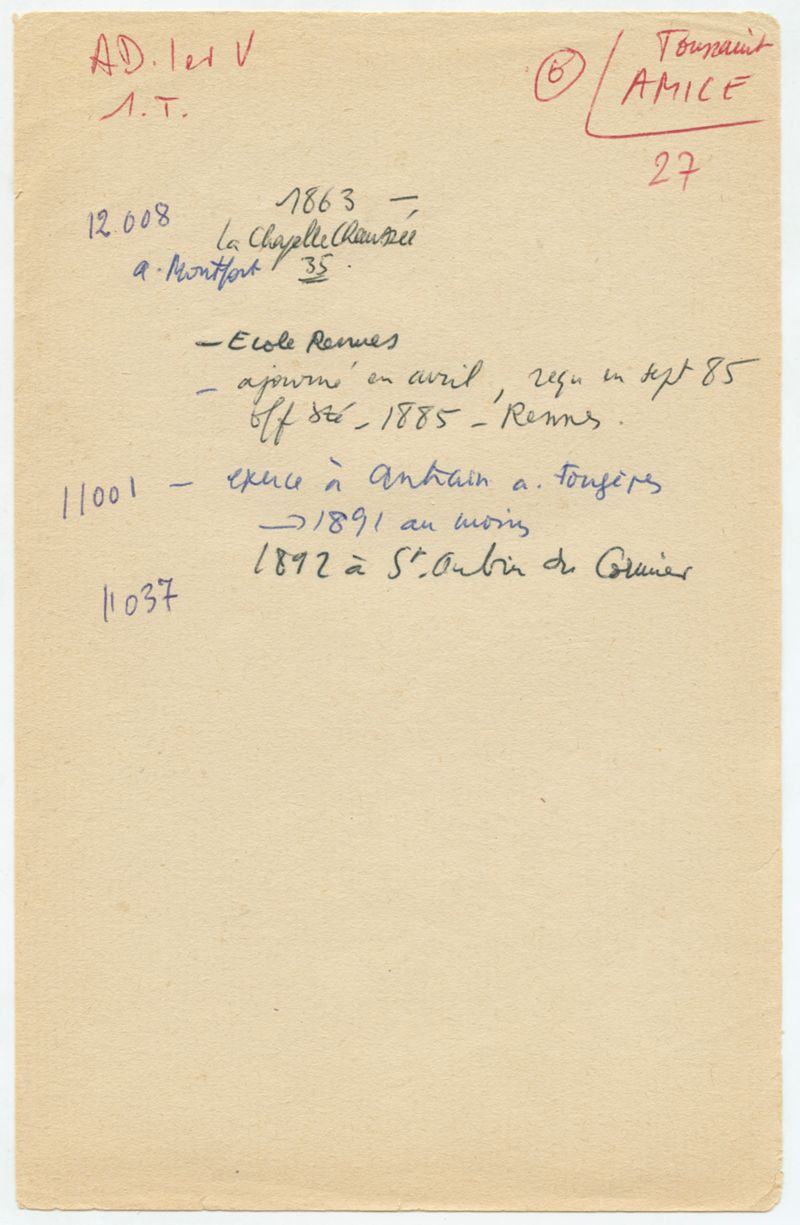 AD. I et V
1. T.
6
Toussaint
AMICE
27
1863 —
12.008
La Chapelle Chaussée
a. Montfort 35.
— Ecole Rennes
— ajourné en avril, reçu en sept 85
off été - 1885 - Rennes.
11001 — exerce à Antrain a. Fougères
→ 1891 au moins
1892 à St. Aubin du Cormier
11037